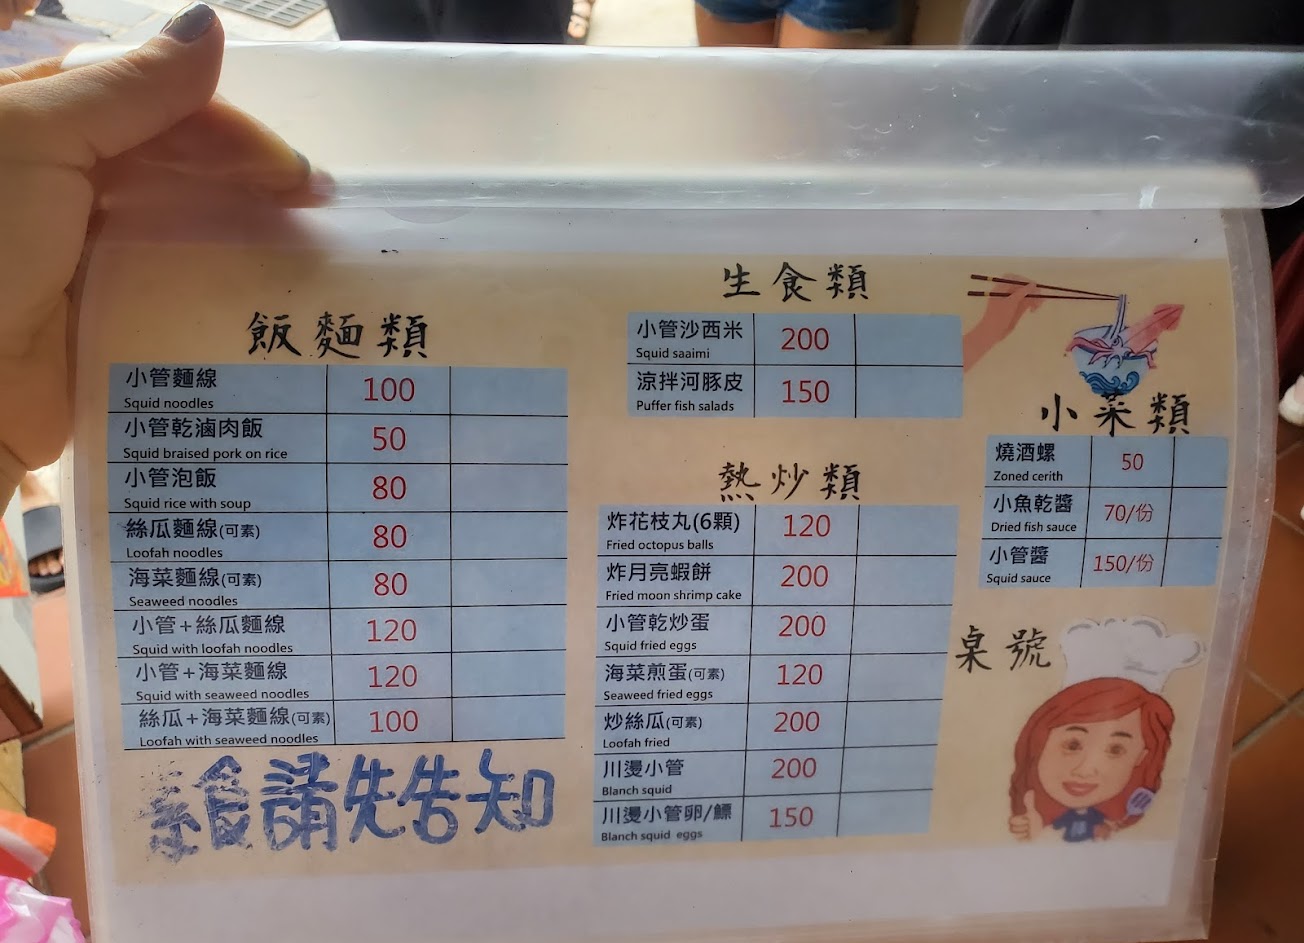 飯麵類
小管麵線 100
Squid noodles
小管乾滷肉飯 50
Squid braised pork on rice
小管泡飯 80
Squid rice with soup
絲瓜麵線(可素) 80
Loofah noodles
海菜麵線(可素) 80
Seaweed noodles
小管+絲瓜麵線 120
Squid with loofah noodles
小管+海菜麵線 120
Squid with seaweed noodles
絲瓜+海菜麵線(可素) 100
Loofah with seaweed noodles
素食請先告知
生食類
小管沙西米 200
Squid saaimi
涼拌河豚皮 150
Puffer fish salads
熱炒類
炸花枝丸(6顆) 120
Fried octopus balls
炸月亮蝦餅 200
Fried moon shrimp cake
小管乾炒蛋 200
Squid fried eggs
海菜煎蛋(可素) 120
Seaweed fried eggs
炒絲瓜(可素) 200
Loofah fried
川燙小管 200
Blanch squid
川燙小管卵/鰾 150
Blanch squid eggs
小菜類
燒酒螺 50
Zoned cerith
小魚乾醬 70/份
Dried fish sauce
小管醬 150/份
Squid sauce
桌號